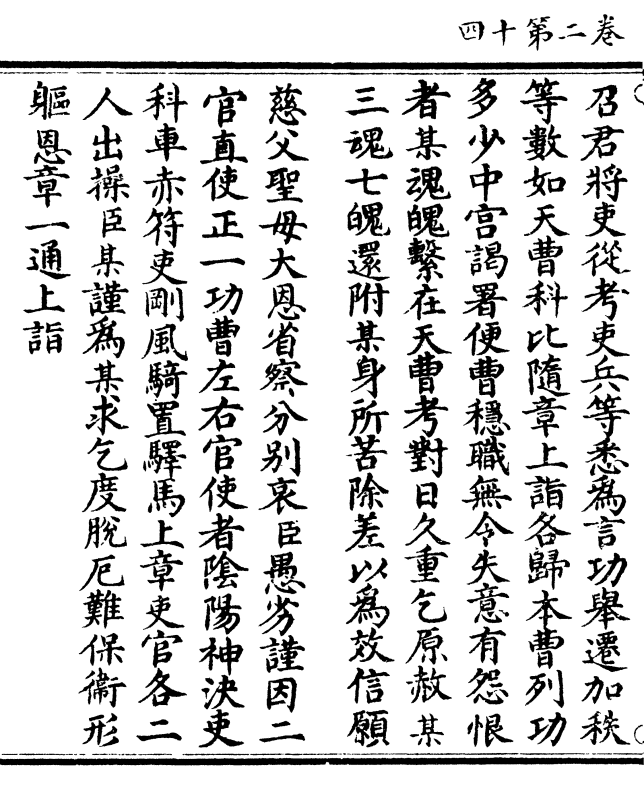 卷二第十四
召君將吏從考吏兵等悉爲言功舉遷加秩
等數如天曹科比隨章上詣各歸本曹列功
多少中宫謁署便曹穩職無令失意有怨恨
者某魂魄繫在天曹考對日久重乞原赦某
三魂七魄還附某身所苦除差以爲效信願
慈父聖母大恩省察分别哀臣愚劣謹因二
官直使正一功曹左右官使者陰陽神決吏
科車赤符吏剛風騎置驛馬上章吏官各二
人出操臣某謹爲某求乞度脫厄難保衛形
軀恩章一通上詣